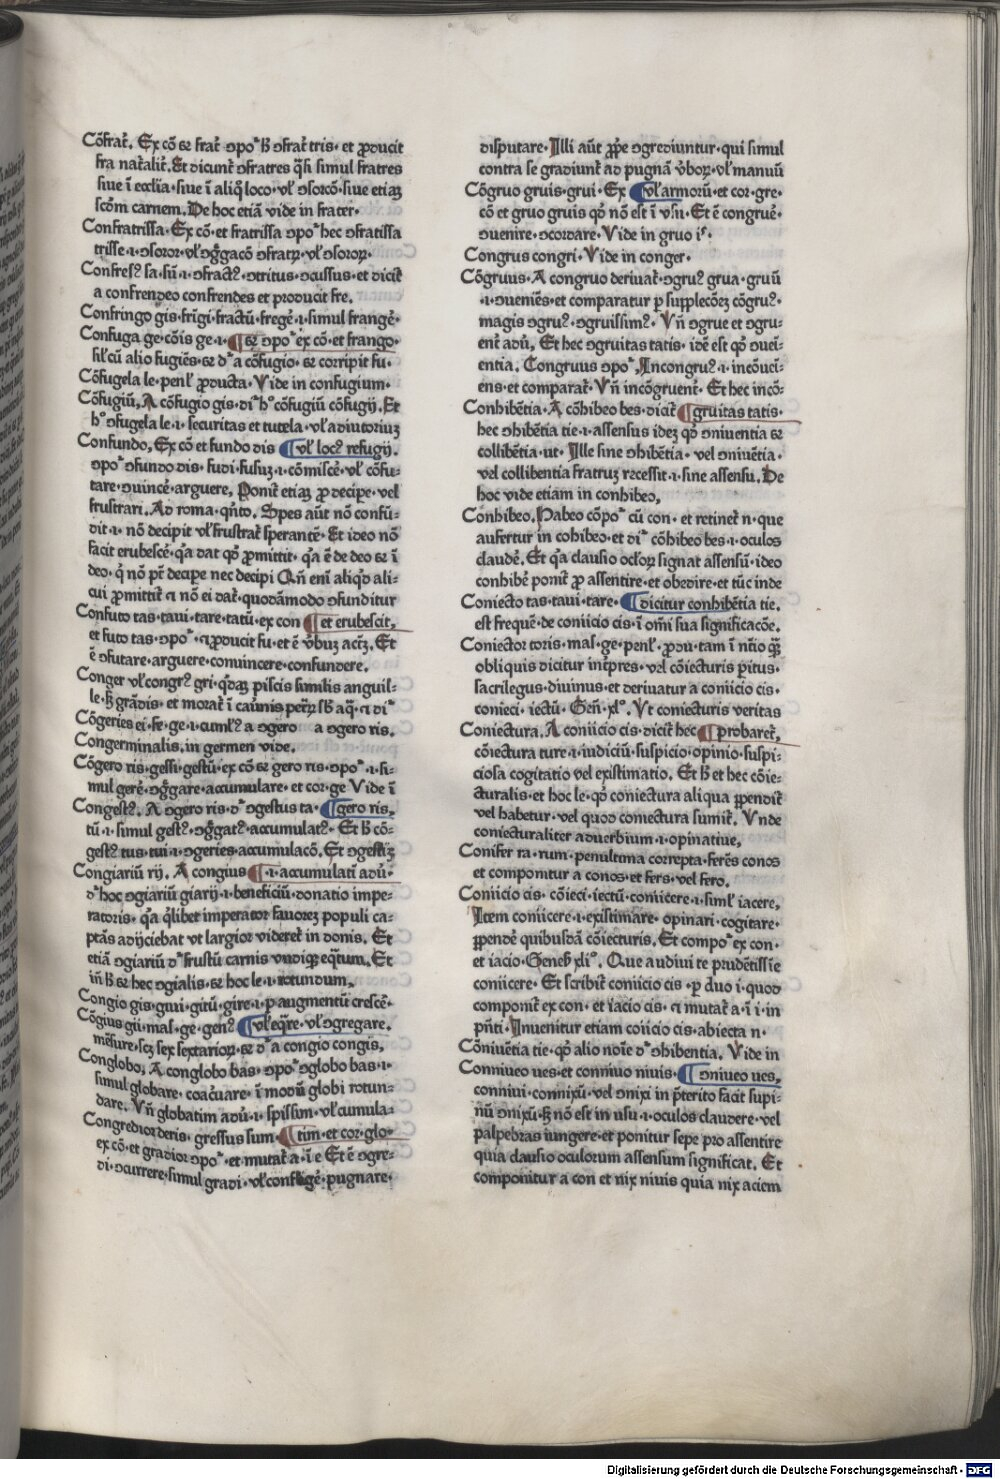 Cõfrat᷑. Ex cõ ⁊ frat᷑ ↄpoᵐ b̃ ↄfrat᷑ tris· et ꝓducit
fra nat᷑alit᷑. Et dicunt᷑ ↄfratres q̃si simul fratres
siue ĩ eccl̃ia·siue ĩ aliq̃ loco·vl̕ ↄsorcõ·siue etiaꝫ
scd̃m carnem. De hoc etiã vide in frater·
Confratrissa·Ex cõ·et fratrissa ↄpoᵐ hec ↄfratissa
trisse·i·ↄsoror·vl̕ ↄg̃gacõ ↄfratꝝ·vl̕ ↄsoroꝝ·
Confresꝰ sa·sũ·i·ↄfractꝰ·ↄtritus·ↄcussus·et dicit᷑
a confrendeo confrendes et producit fre.
Confringo gis·frigi·fractũ·fregẽ·i·simul frangẽ·
Confuga ge·cõis ge·i· ¶ ⁊ ↄpoᵐ ex cõ·et frango·
sil̕ cũ alio fugiẽs·⁊ dᵐ a cõfugio·⁊ corripit fu·
Cõfugela le·penl̕ ꝓducta·Vide in confugium·
Cõfugiũ. A cõfugio gis·diᵐ hº cõfugiũ cõfugij. Et
hº ↄfugela le·i·securitas et tutela·vl̕ adiutoriuꝫ
Confundo. Ex cõ et fundo dis ¶ vl̕ locꝰ refugij.
ↄpoᵐ ↄfundo dis·fudi·fusuꝫ·i·cõmiscẽ·vl̕ cõfu⸗
tare·ↄuincẽ·arguere. Ponit᷑ etiaꝫ ꝓ decipe·vel
frustrari. Ad roma·qñto. Spes aũt nõ confũ⸗
dit·i·nõ decipit vl̕ frustrat᷑ sperantẽ· Et ideo nõ
facit erubescẽ·q̃a dat qd̃ ꝓmittit·q̃a ẽ de deo ⁊ ĩ
deo·q̃ nõ pt̃ decipe nec decipi Qñ eni᷑ aliq̃d ali⸗
cui ꝓmittit᷑ ⁊ nõ ei dat᷑·quodãmodo ↄfunditur
Confuto tas·taui·tare·tatũ·ex con ¶ et erubescit.
et futo tas·ↄpoᵐ·⁊ ꝓducit fu·et ẽ v̕buꝫ act᷑ꝫ. Et
ẽ ↄfutare·arguere·conuincere·confundere.
Conger vl̕ congrꝰ gri·q̃daꝫ piscis similis anguil⸗
le·b̃ grãdis·et morat᷑ ĩ cauĩnis petrꝝ sb̃ aq̃·⁊ diᵐ
Cõgeries ei·fe·ge·i·cumlꝰ a ↄgero a ↄgero ris.
Congerminalis. in germen vide.
Cõgero ris·gessi·gestũ·ex cõ ⁊ gero ris·ↄpoᵐ·i·si⸗
mul gerẽ·ↄg̃gare·accumulare·et cor·ge Vide ĩ
Congestꝰ. A ↄgero ris·dᵐ ↄgestus ta· ¶ gero ris.
tũ·i·simul gestꝰ·ↄg̃gatꝰ·accumulatꝰ· Et b̃ cõ⸗
gestꝰ tus·tui·i·ↄgeries·accumulacõ. Et ↄgestiꝫ
Congiariũ rij. A congius ¶ ·i·accumulati᷑ adũ·
dᵐ hoc ↄgiariũ giarij·i·beneficiũ·donatio impe⸗
ratoris·q̃a q̃libet imperator fauoreꝫ populi ca⸗
ptãs adijciebat vt largior videret᷑ in donis. Et
etiã ↄgiariũ dᵐ frustũ carnis vndiqꝫ eq̃tum. Et
iñ b̃ ⁊ hec ↄgialis·⁊ hoc le·i·rotundum.
Congio gis·giui·gitũ·gire·i·ꝑ augmentũ crescẽ·
Cõgius gii·mas·ge·genꝰ ¶ vl̕ eq̃re·vl̕ ↄgregare.
mẽsure·scꝫ sex sextarioꝝ·⁊ dᵐ a congio congis.
Conglobo. A conglobo bas·ↄpoᵐ ↄglobo bas·i·
simul globare·coaẽuare·ĩ modũ globi rotun⸗
dare. Vñ globatim adũ·i·spissim·vl̕ cumula⸗
Congredior deris·gressus sum· ¶ tim·et cor·glo·
ex cõ·et gradior ↄpoᵐ·et mutat᷑ a·ĩ e Et ẽ ↄgre⸗
di·ↄcurrere·simul gradi·vl̕ confligẽ·pugnare·
disputare·Illi aũt ꝓp̃e ↄgrediuntur·qui simul
contra se gradiunt᷑ ad pugnã v̕boꝝ·vl̕ manuũ
Cõgruo gruis·grui·Ex ¶ vl̕ armorũ·et cor·gre·
cõ et gruo gruis qd̃ nõ est ĩ vsu·Et ẽ congruẽ·
ↄuenire·ↄcordare·Vide in gruo iˢ·
Congrus congri·Vide in conger·
Cõgruus·A congruo deriuat᷑ ↄgruꝰ grua·gruũ
·i·ↄueniẽs·et comparatur ꝑ supplecõeꝫ cõgruꝰ·
magis ↄgruꝰ·ↄgruissimꝰ·Vñ ↄgrue et ↄgru⸗
ent᷑ adũ. Et hec ↄgruitas tatis·idẽ est qd̃ ↄuei᷑⸗
entia. Congruus ↄpoᵐ. Incongruꝰ·i·incõuei᷑⸗
ens·et comparat᷑·Vñ incõgruent᷑·Et hec incõ⸗
Conhibẽtia·A cõhibeo bes·dicit᷑ ¶ gruitas tatis·
hec ↄhibẽtia tie·i·assensus ideꝫ qd̃ ↄniuentia ⁊
collibẽtia·ut·Ille sine ↄhibẽtia·vel ↄniuẽtia·
vel collibentia fratruꝫ recessit·i·sine assensu. De
hoc vide etiam in conhibeo.
Conhibeo. Habeo cõpoᵐ cũ con·et retinet᷑ n·que
aufertur in cohibeo·et diᵐ cõhibeo bes·i·oculos
claudẽ. Et q̃a clausio ocl̕oꝝ signat assensũ·ideo
conhibẽ ponit᷑ ꝓ assentire·et obedire·et tũc inde
Coniecto tas·taui·tare· ¶ dicitur conhibẽtia tie.
est frequẽ·de coniicio cis·ĩ om̃i sua significacõe.
Coniector toris·mas·ge·penl̕·ꝓdu·tam ĩ nt̃io q̃ꝫ
obliquis dicitur int᷑pres·vel cõiecturis ꝑitus·
sacrilegus·diuinus·et deriuatur a coniicio cis·
conieci·iectũ·Geñ·xlº·Vt coniecturis veritas
Coniectura. A coniicio cis·dicit᷑ hec ¶ probaret᷑.
cõiectura ture·i·iudiciũ·suspicio·opinio·suspi⸗
ciosa cogitatio vel existimatio. Et b̃ et hec cõie⸗
cturalis·et hoc le·qd̃ coniectura aliqua ꝑpendit᷑
vel habetur·vel quod coniectura sumit᷑. Vnde
coniecturaliter aduerbium·i·opinatiue.
Conifer ra·rum·penultima correpta·ferẽs conos
et componitur a conos·et fers·vel fero.
Coniicio cis·cõieci·iectũ·coniicere·i·siml̕ iacere.
Item coniicere·i·existimare·opinari·cogitare·
ꝑpendẽ quibusdã cõiecturis. Et compoᵐ ex con·
et iacio·Geneb̃ xliº. Que audiui te prudẽtissie
coniicere·Et scribit᷑ coniicio cis·ꝑ duo i·quod
componit᷑ ex con·et iacio cis·⁊ mutat᷑ a·ĩ i·in
pñti·Inuenitur etiam coiicio cis·abiecta n·
Cõniuẽtia tie·qd̃ alio noi᷑e dᵐ ↄhibentia. Vide in
Conniueo ues·et conniuo niuis· ¶ ↄniueo ues.
connixi·connixũ·vel ↄnixi in p̃terito facit supi⸗
nũ ↄnixũ·sꝫ nõ est in usu·i·oculos claudere·vel
palpebras iungere·et ponitur sepe pro assentire
quia clausio oculorum assensum significat. Et
componitur a con et nix niuis quia nix aciem
Digitalisierung gefördert durch die Deutsche Forschungsgemeinschaft · DFG